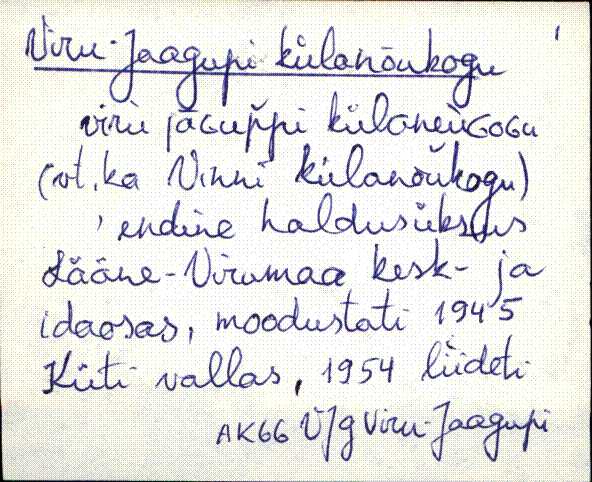 Viru-Jaagupi külanõukogu
viru jāGuppi külaneùGoGu
(vt. ka Vinni külanõukogu)
' endine haldusüksus
Lääne-Virumaa kesk- ja
idaosas, moodustati 1945
Küti vallas, 1954 liideti
AK66 V/g Viru-Jaagupi